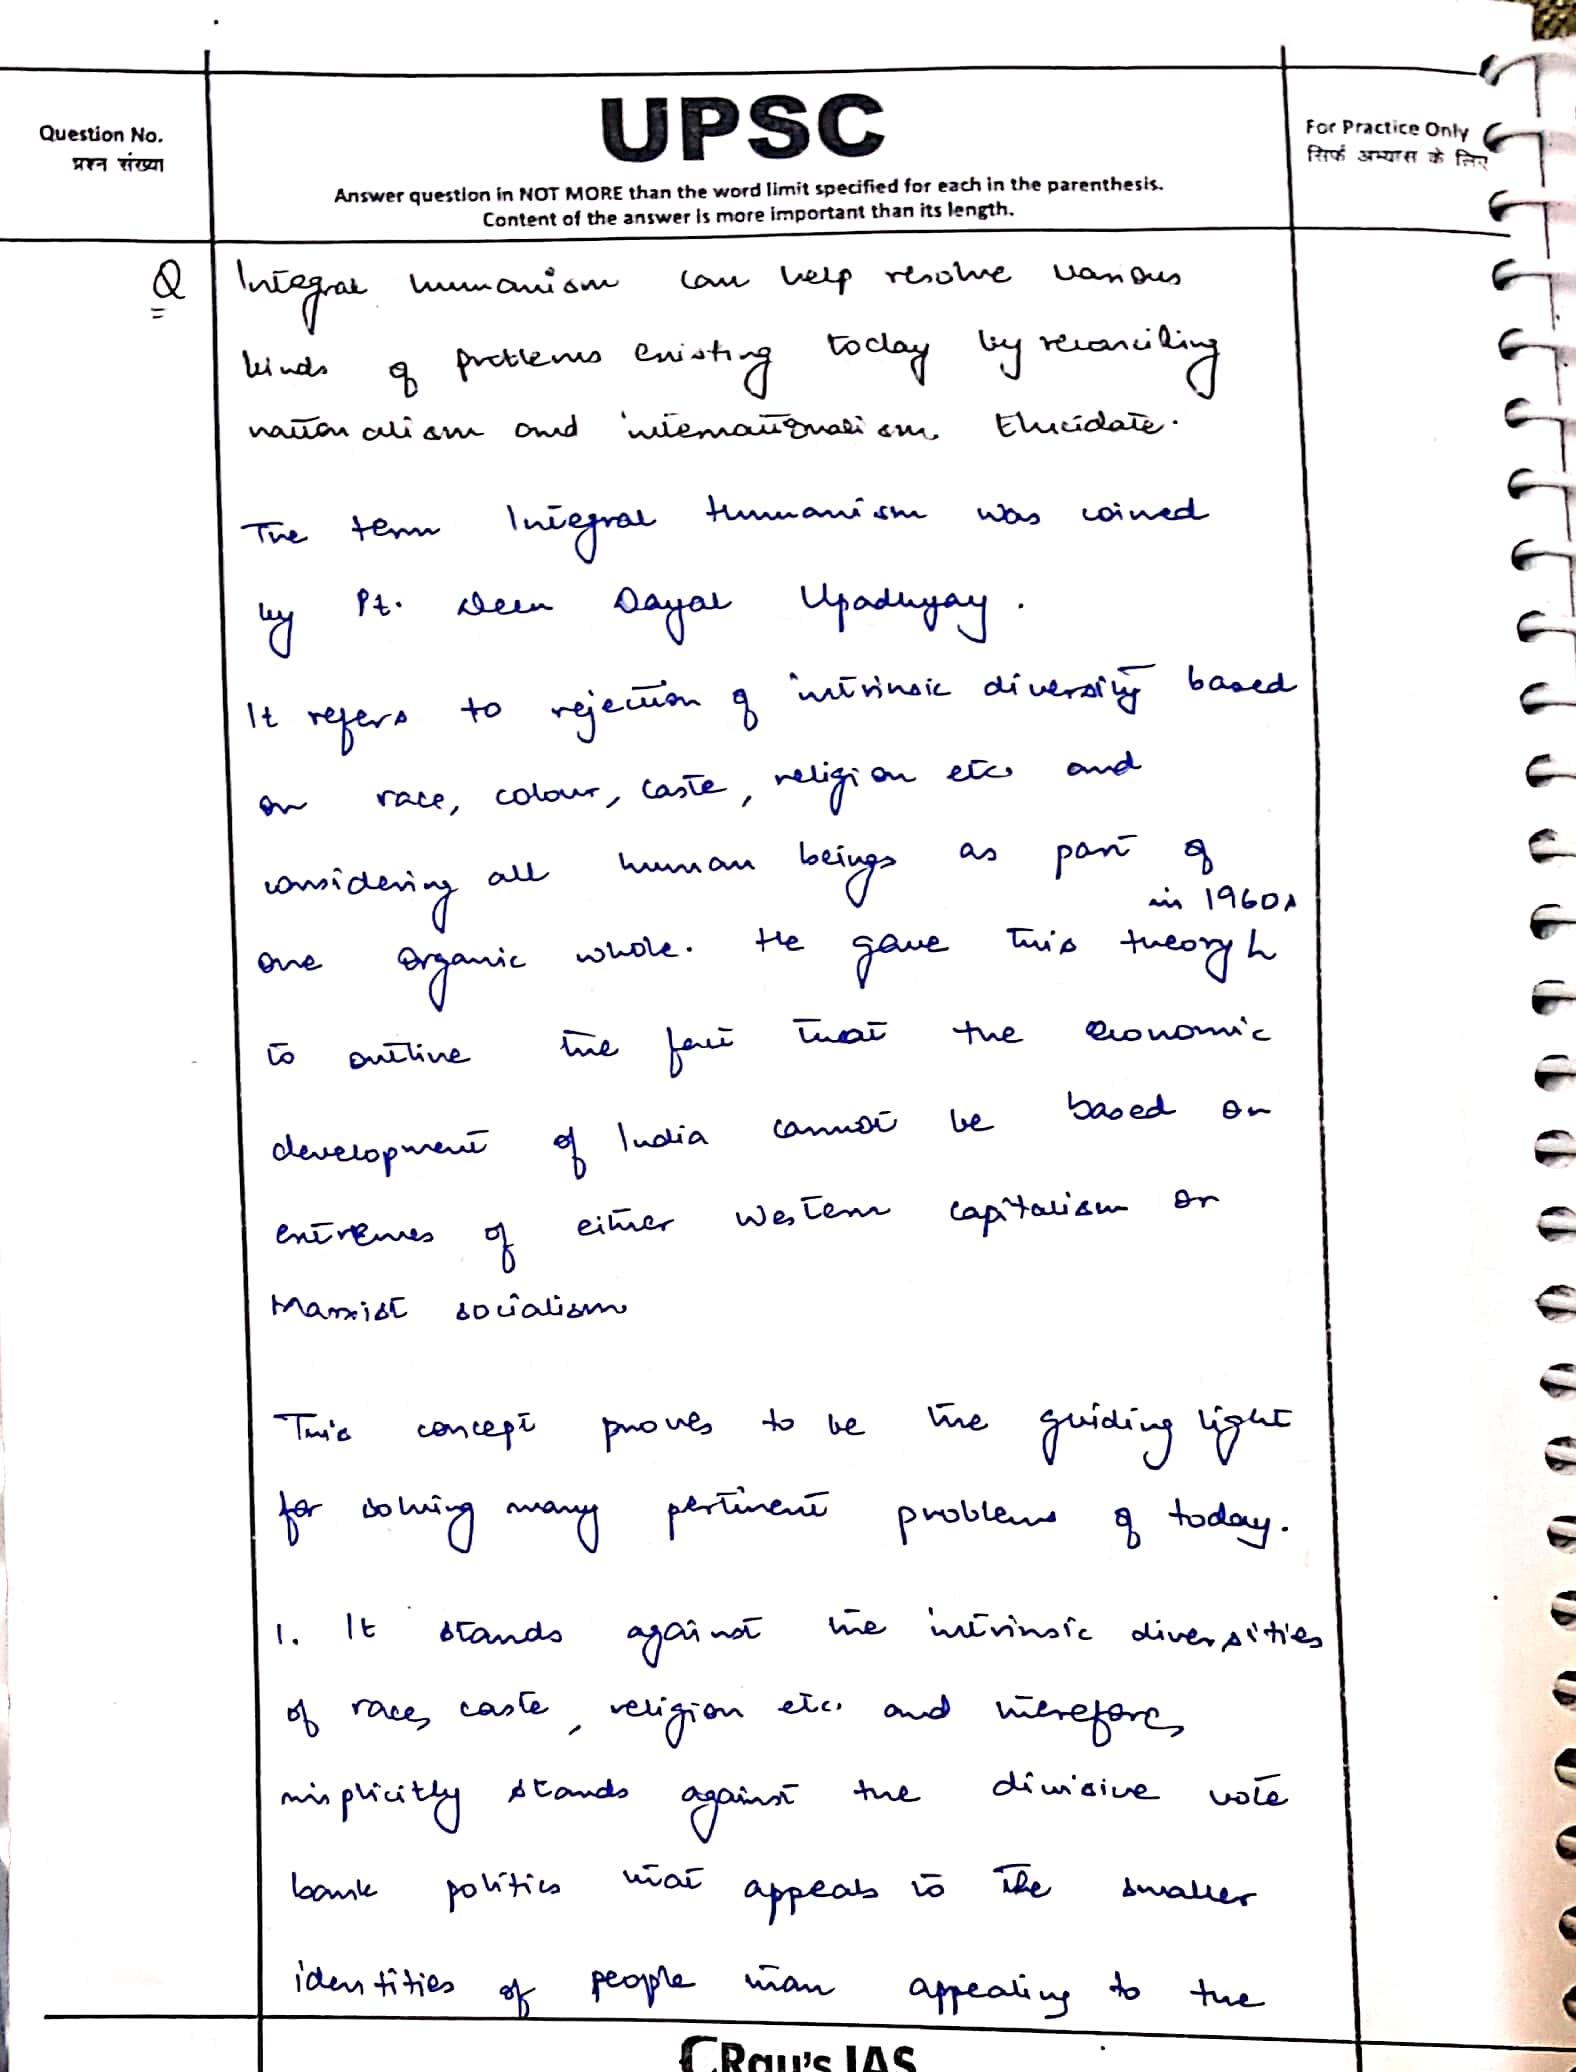 Question No.
प्रश्न संख्या
UPSC
Answer question in NOT MORE than the word limit specified for each in the parenthesis.
Content of the answer is more important than its length.
For Practice Only
सिर्फ अभ्यास के लिए
Q Integral humanism can help resolve various
kinds of problems existing today by reconciling
nationalism and internationalism. Elucidate.
The term Integral Humanism was coined
by Pt. Deen Dayal Upadhyay.
It refers to rejection of intrinsic diversity based
on race, colour, caste, religion etc and
considering all human beings as part of
one organic whole. He gave this theory in 1960s
to outline the fact that the economic
development of India cannot be based on
extremes of either western capitalism or
Marxist socialism
This concept proves to be the guiding light
for solving many pertinent problems of today.
1. It stands against the intrinsic diversities
of race, caste, religion etc. and therefore,
implicitly stands against the divisive vote
bank politics that appeals to the smaller
identities of people than appealing to the
Rau's IAS